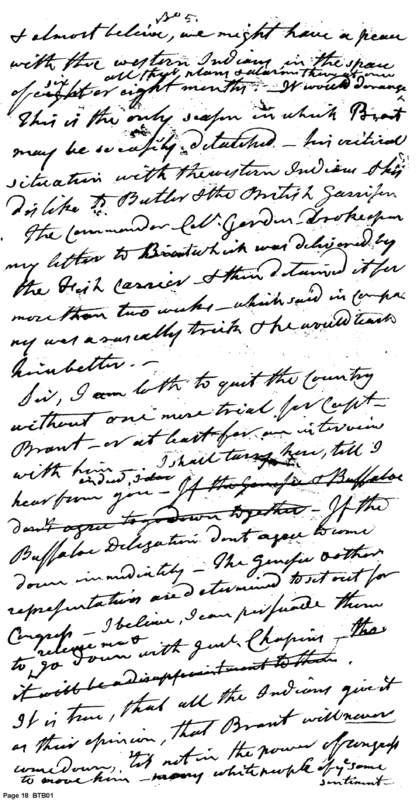 No 5.
I almost believe, we might have a peace
with the western Indians in the space
six all their plans & alarm them at once
of eight or eight months — It would derange
This is the only season in which Brant
may be so easily detached — his critical
situation with the western Indians & his
dislike to Butler & the British Garrison
The Commander Col. Gordon broke open
my letter to Brant which was delivered by
the Irish carrier & then detained it for
more than two weeks — which said in compa
ny was a rascally trick & he would teach
him better. —
Sir, I am loth to quit the Country
without one more trial for Capt
Brant — or at least for an interview
with him — I shall tarry here, till I
hear from you — If the Genesee & Buffaloe
don't agree to go down together — If the
Buffaloe Delegation dont agree to come
down immediately — The Genesee & other
representatives are determined to set out for
Congress — I believe, I can persuade them
to go down with Genl. Chapin — the
it will be a disappointment to them.
It is true, that all the Indians give it
as their opinion, that Brant will never
come down, 'tis not in the power of Congress
to move him — many white people of ye same
sentiment —
Page 18 BTB01